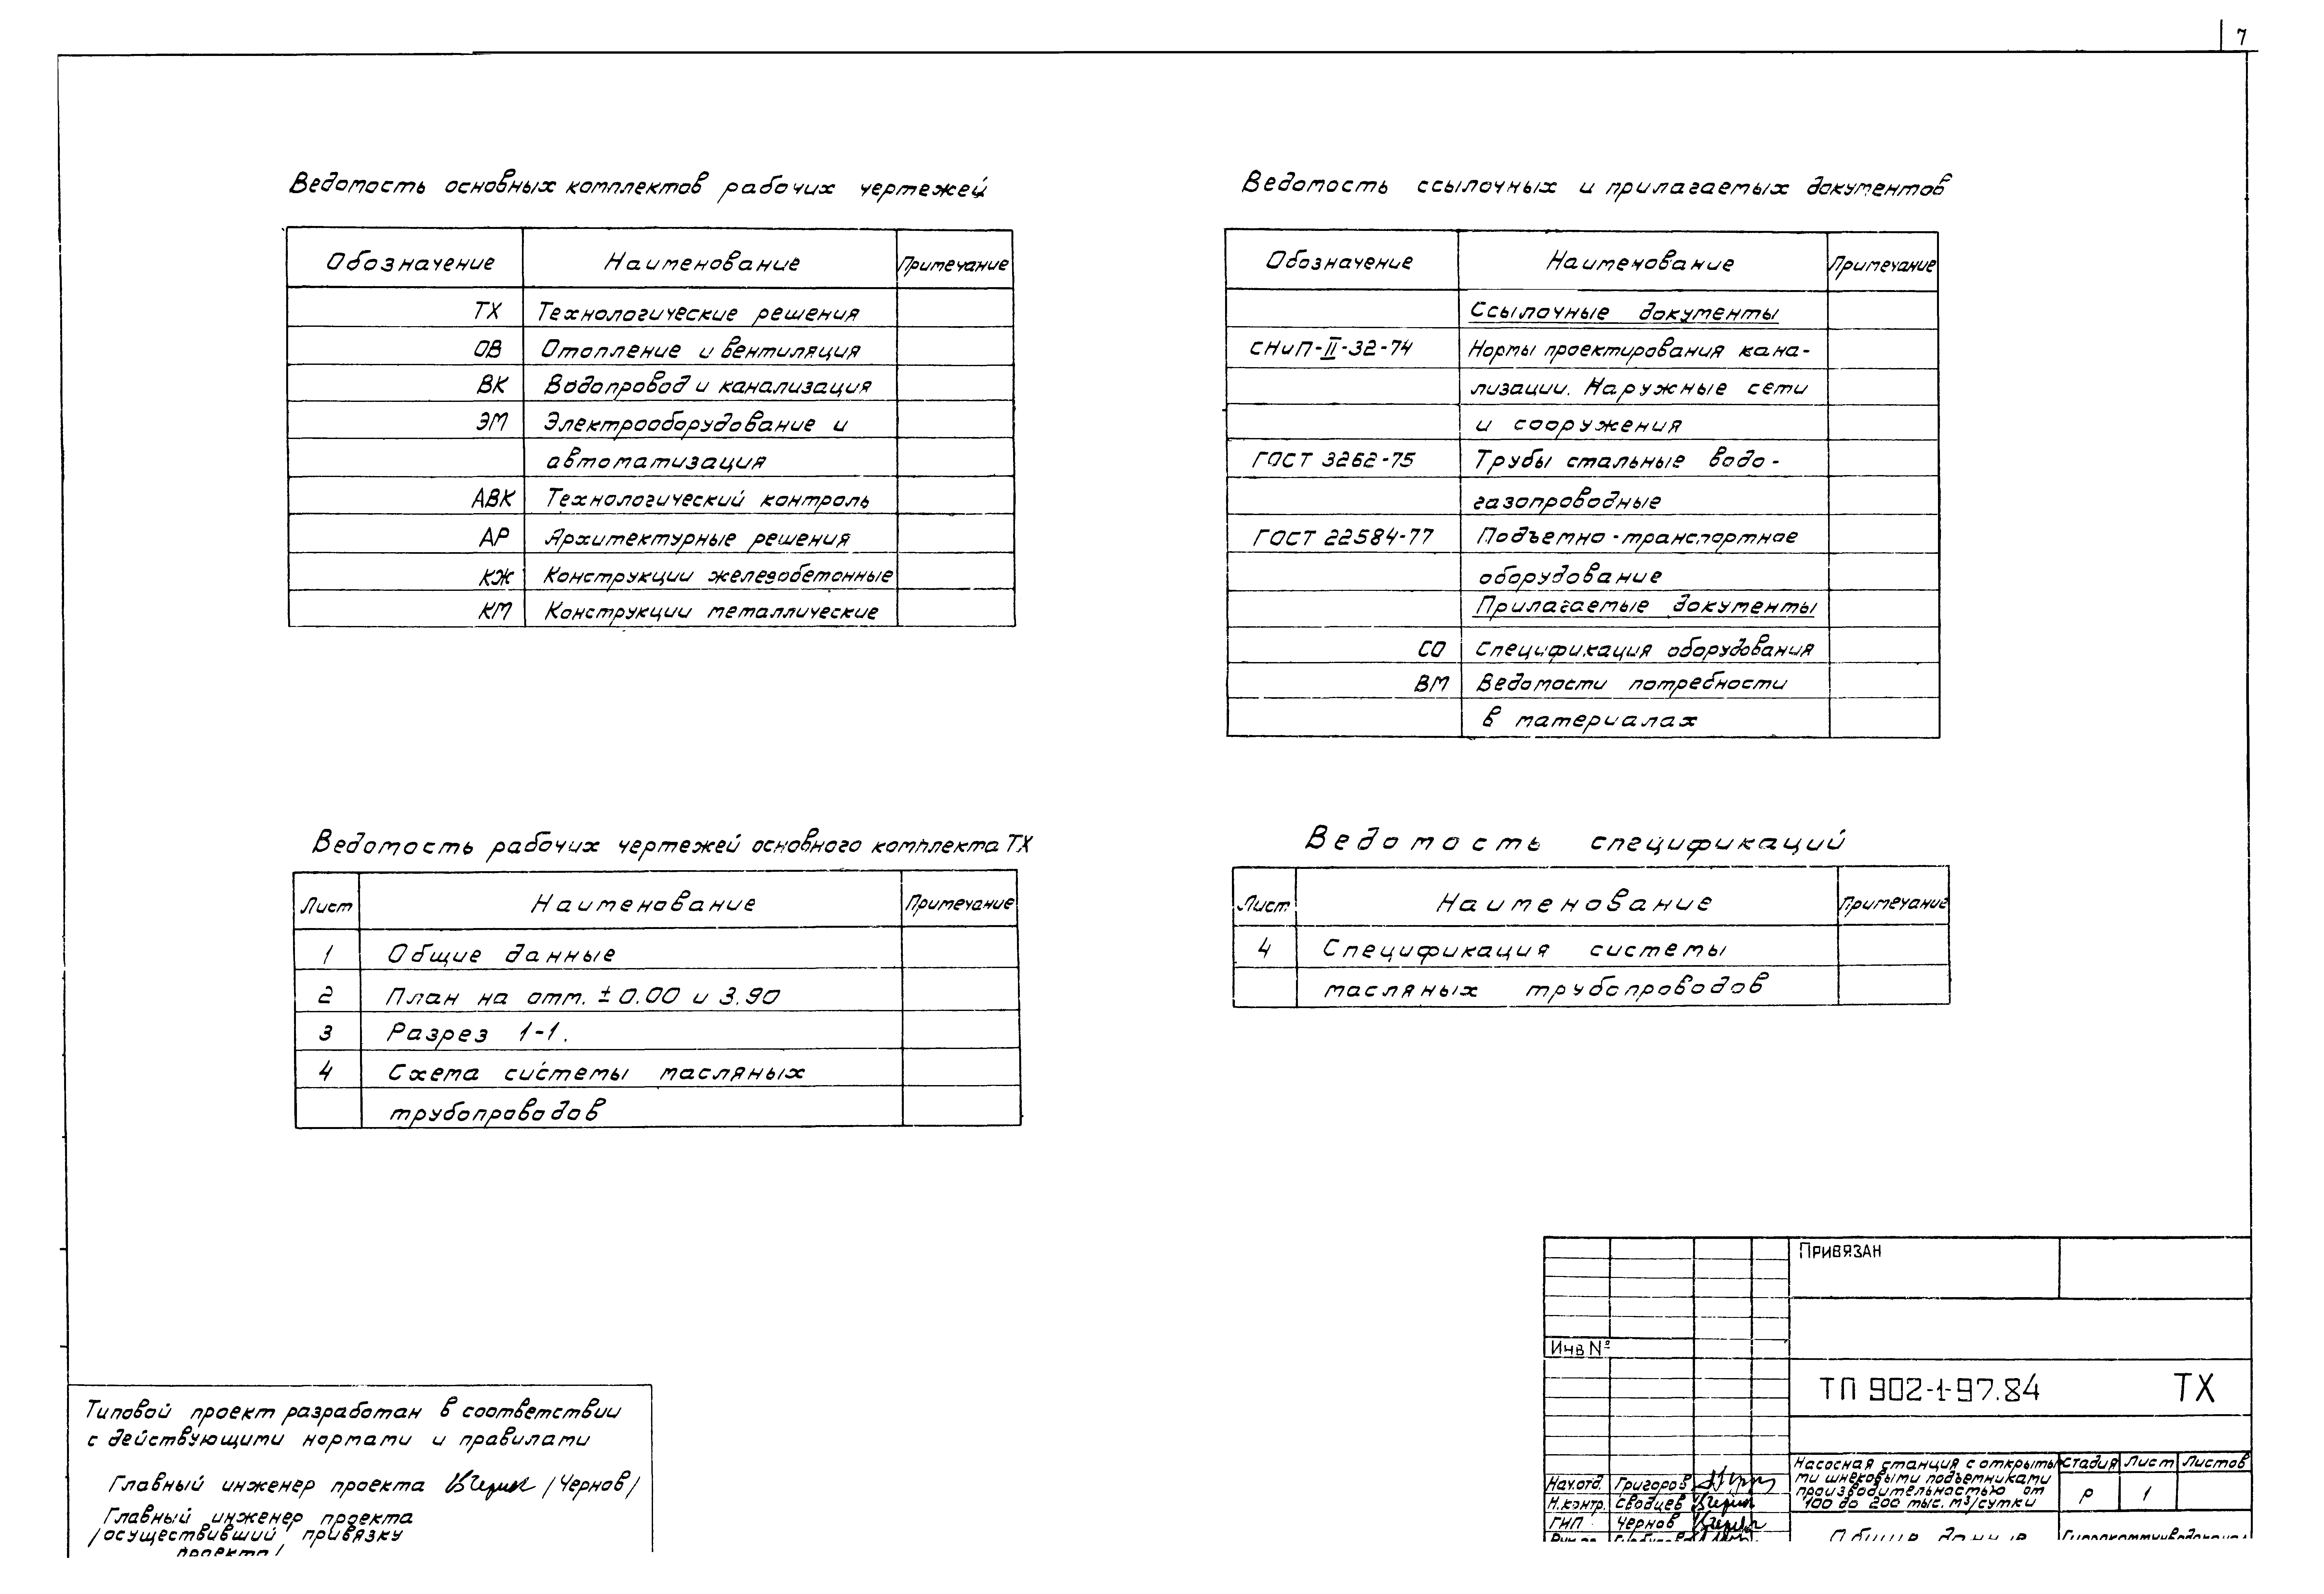 7
Ведомость основных комплектов рабочих чертежей
Обозначение Наименование Примечание
ТХ Технологические решения
ОВ Отопление и вентиляция
ВК Водопровод и канализация
ЭМ Электрооборудование и
автоматизация
АВК Технологический контроль
АР Архитектурные решения
КЖ Конструкции железобетонные
КМ Конструкции металлические
Ведомость ссылочных и прилагаемых документов
Обозначение Наименование Примечание
Ссылочные документы
СНиП-II-32-74 Нормы проектирования кана-
лизации. Наружные сети
и сооружения
ГОСТ 3262-75 Трубы стальные водо-
газопроводные
ГОСТ 22584-77 Подъемно-транспортное
оборудование
Прилагаемые документы
СО Спецификация оборудования
ВМ Ведомости потребности
в материалах
Ведомость рабочих чертежей основного комплекта ТХ
Лист Наименование Примечание
1 Общие данные
2 План на отм. ±0.00 и 3.90
3 Разрез 1-1.
4 Схема системы масляных
трубопроводов
Ведомость спецификаций
Лист Наименование Примечание
4 Спецификация системы
масляных трубопроводов
Типовой проект разработан в соответствии
с действующими нормами и правилами
Главный инженер проекта /Чернов/
Главный инженер проекта
/осуществивший привязку
проекта/
Привязан
Инв №
ТП 902-1-97.84 ТХ
Насосная станция с открыты-
ми шнековыми подъемниками
производительностью от
100 до 200 тыс. м³/сутки
Стадия Лист Листов
Р 1
Нач.отд. Григоров
Н.контр. Сводцев
ГИП Чернов
Общие данные